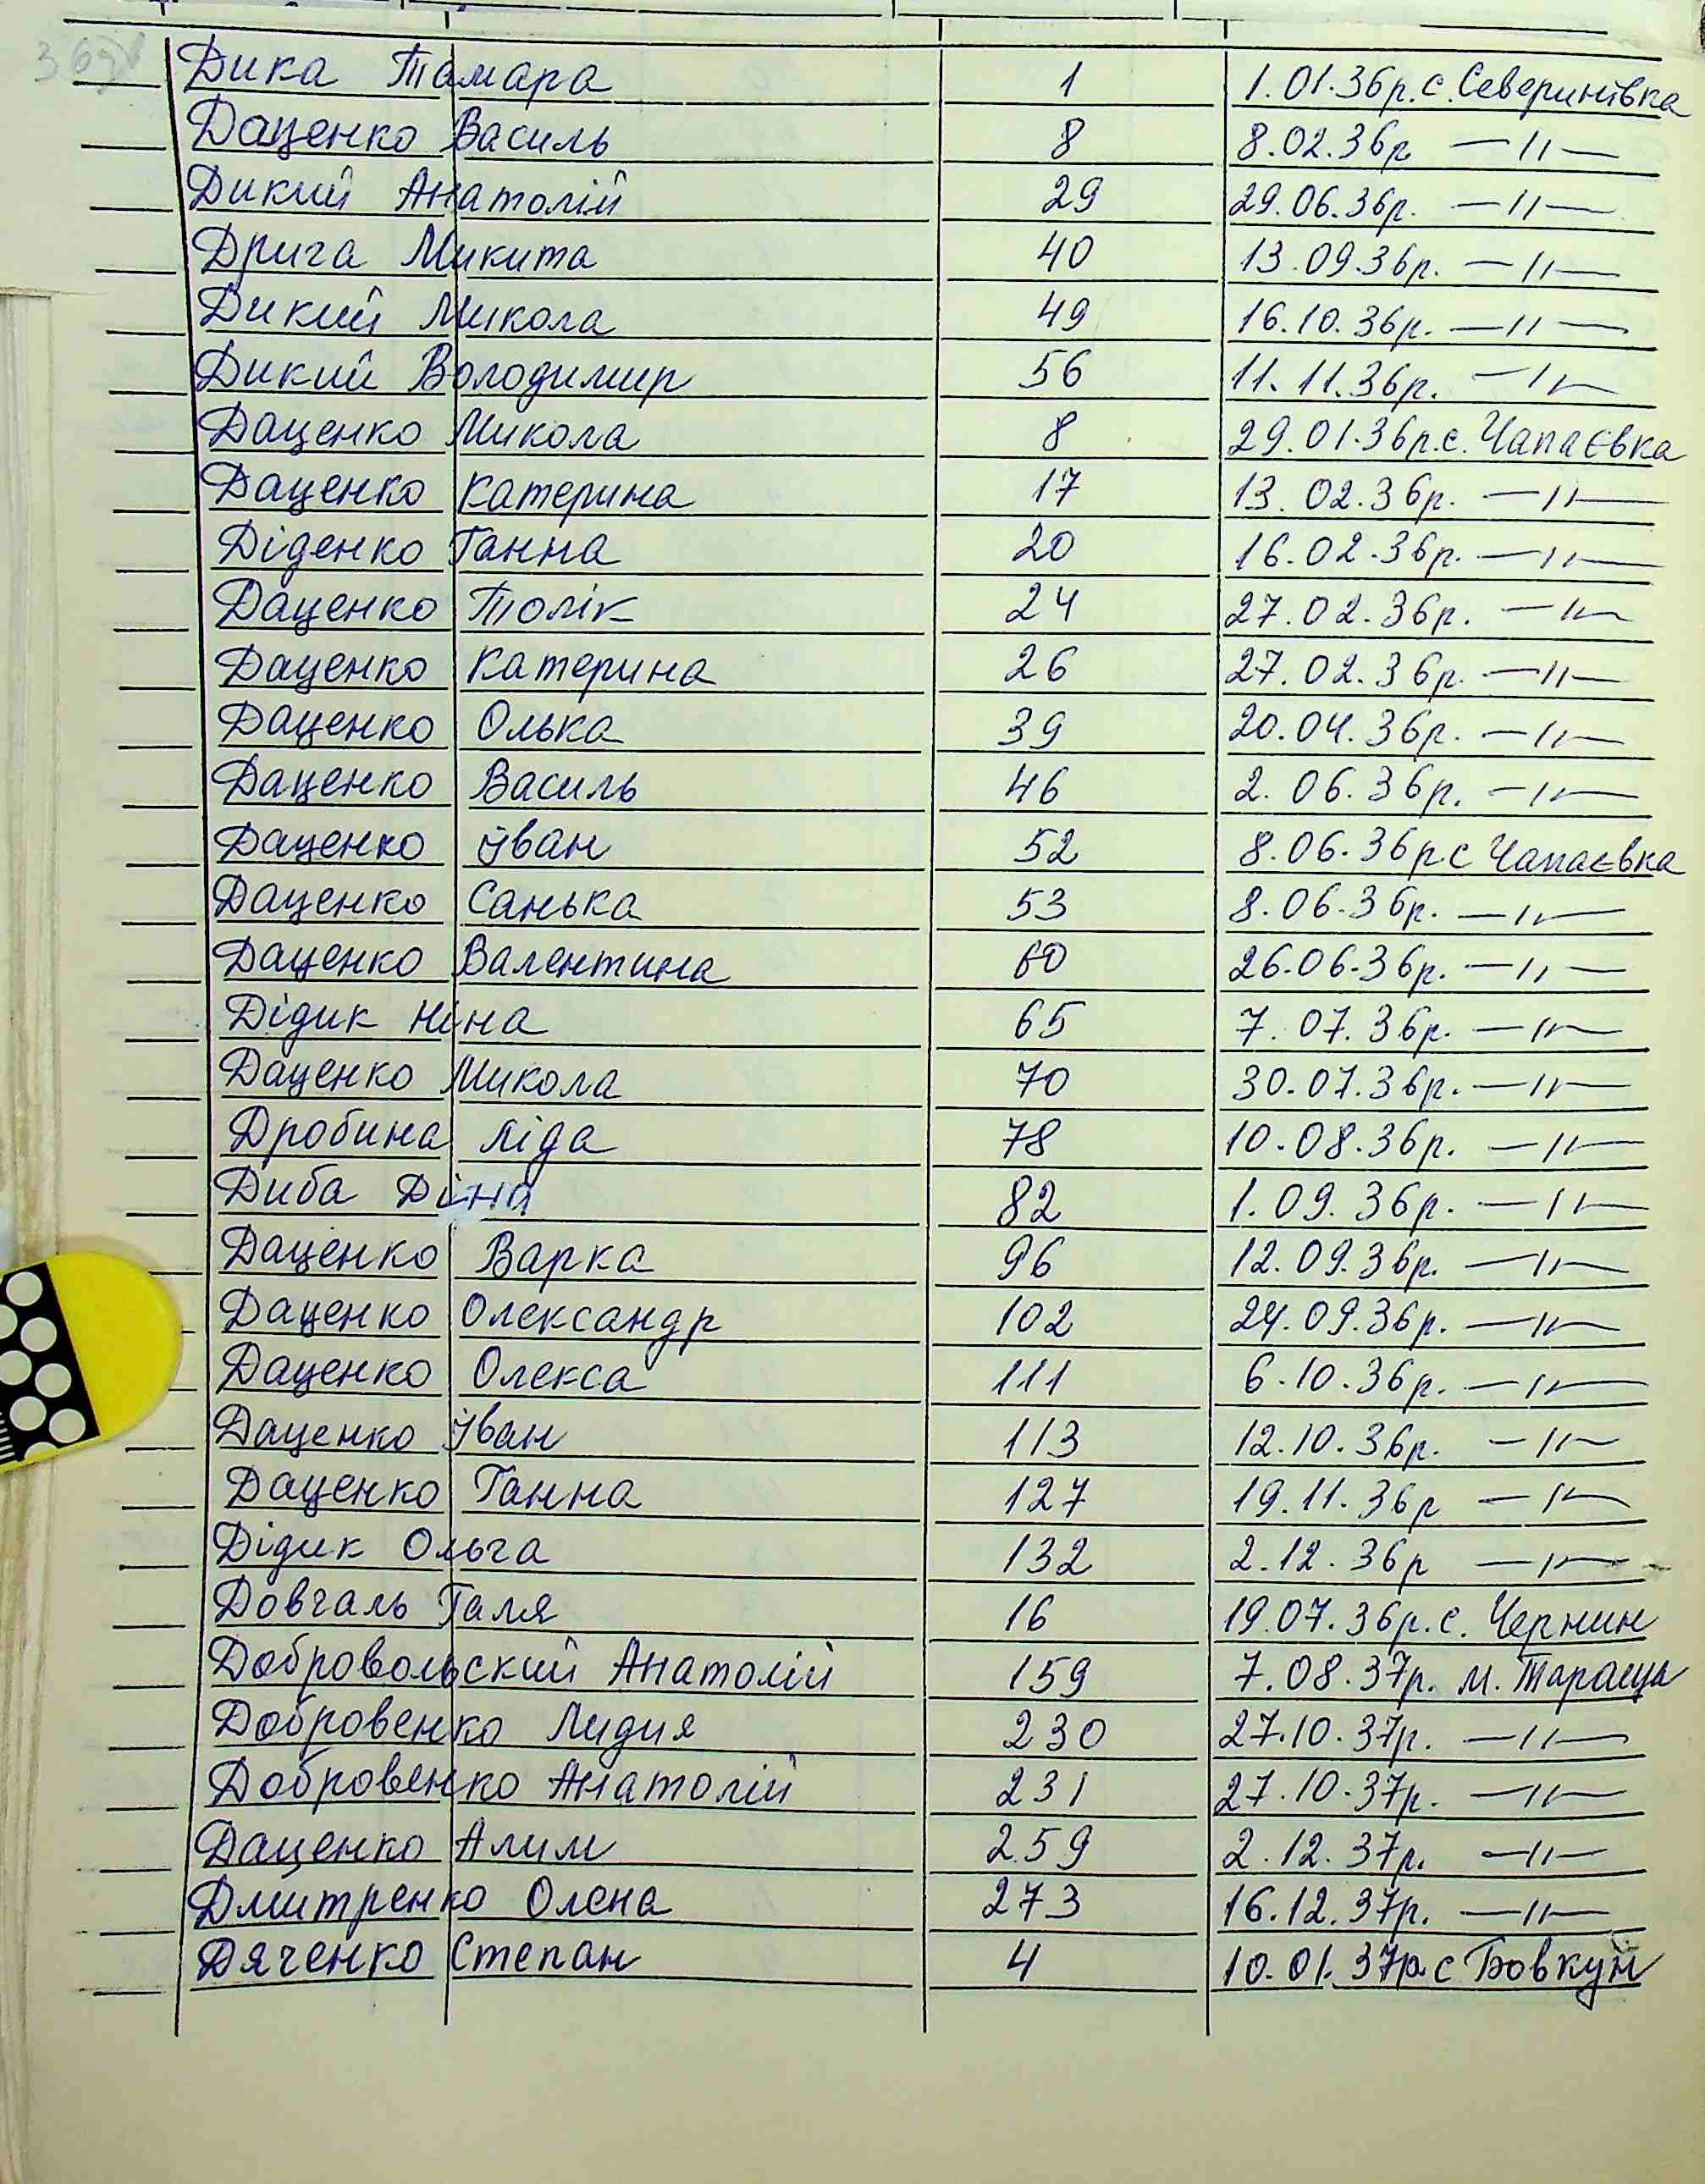 Дика Тамара 1 1.01.36р.с.Северинівка
Даценко Василь 8 8.02.36р —//—
Дикий Анатолій 29 29.06.36р. —//—
Дрига Микита 40 13.09.36р. —//—
Дикий Микола 49 16.10.36р. —//—
Дикий Володимир 56 11.11.36р. —//—
Даценко Микола 8 29.01.36р.с. Чапаєвка
Даценко Катерина 17 13.02.36р. —//—
Діденко Ганна 20 16.02.36р. —//—
Даценко Толік 24 27.02.36р. —//—
Даценко Катерина 26 27.02.36р. —//—
Даценко Олька 39 20.04.36р. —//—
Даценко Василь 46 2.06.36р. —//—
Даценко Іван 52 8.06.36р с Чапаєвка
Даценко Санька 53 8.06.36р. —//—
Даценко Валентина 60 26.06.36р. —//—
Дідик Ніна 65 7.07.36р. —//—
Даценко Микола 70 30.07.36р. —//—
Дробина Ліда 78 10.08.36р. —//—
Диба Діна 82 1.09.36р. —//—
Даценко Варка 96 12.09.36р. —//—
Даценко Олександр 102 24.09.36р. —//—
Даценко Олекса 111 6.10.36р. —//—
Даценко Іван 113 12.10.36р. —//—
Даценко Ганна 127 19.11.36р —//—
Дідик Ольга 132 2.12.36р —//—
Довгаль Галя 16 19.07.36р.с. Чернин
Добровольский Анатолій 159 7.08.37р. м. Тараща
Добровенко Лидия 230 27.10.37р. —//—
Добровенко Анатолій 231 27.10.37р. —//—
Даценко Алим 259 2.12.37р. —//—
Дмитренко Олена 273 16.12.37р. —//—
Дяченко Степан 4 10.01.37р. с Бовкун